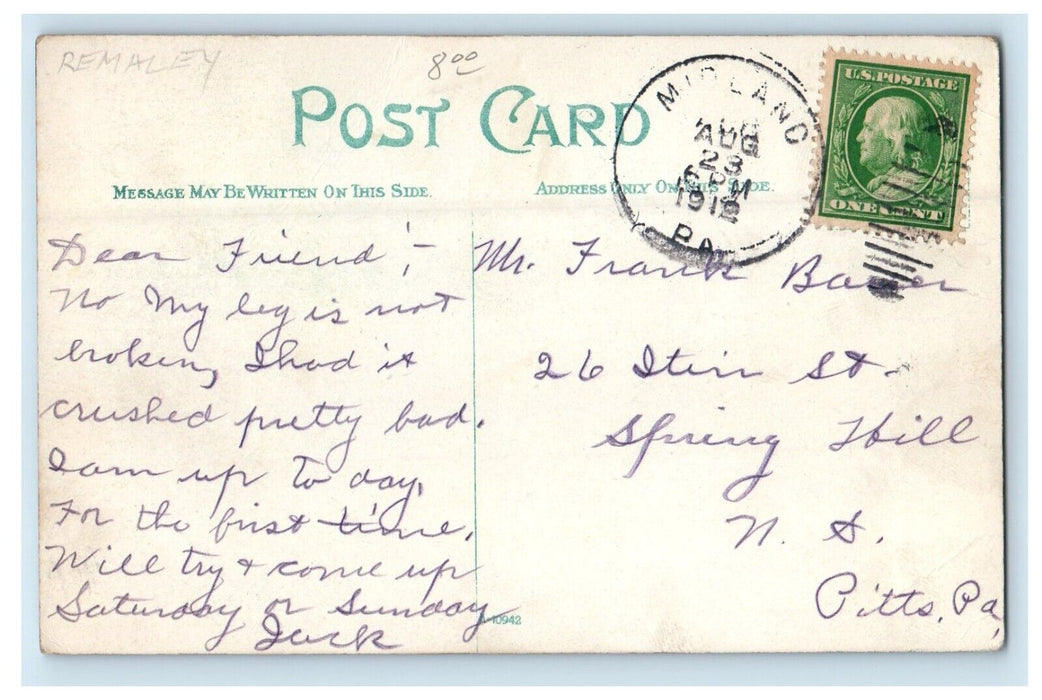 REMALEY
8 00
POST CARD
MESSAGE MAY BE WRITTEN ON THIS SIDE.
ADDRESS ONLY ON THIS SIDE.
MIDLAND
AUG
23
PM
1912
PA.
U.S. POSTAGE
ONE CENT
Dear Friend;-
No My leg is not
broken, I had it
crushed pretty bad.
I am up to day,
For the first time.
Will try & come up
Saturday or Sunday
Jack
Mr. Frank
26 Itin St.
Spring Hill
N. S.
Pitts, Pa,
A-10942